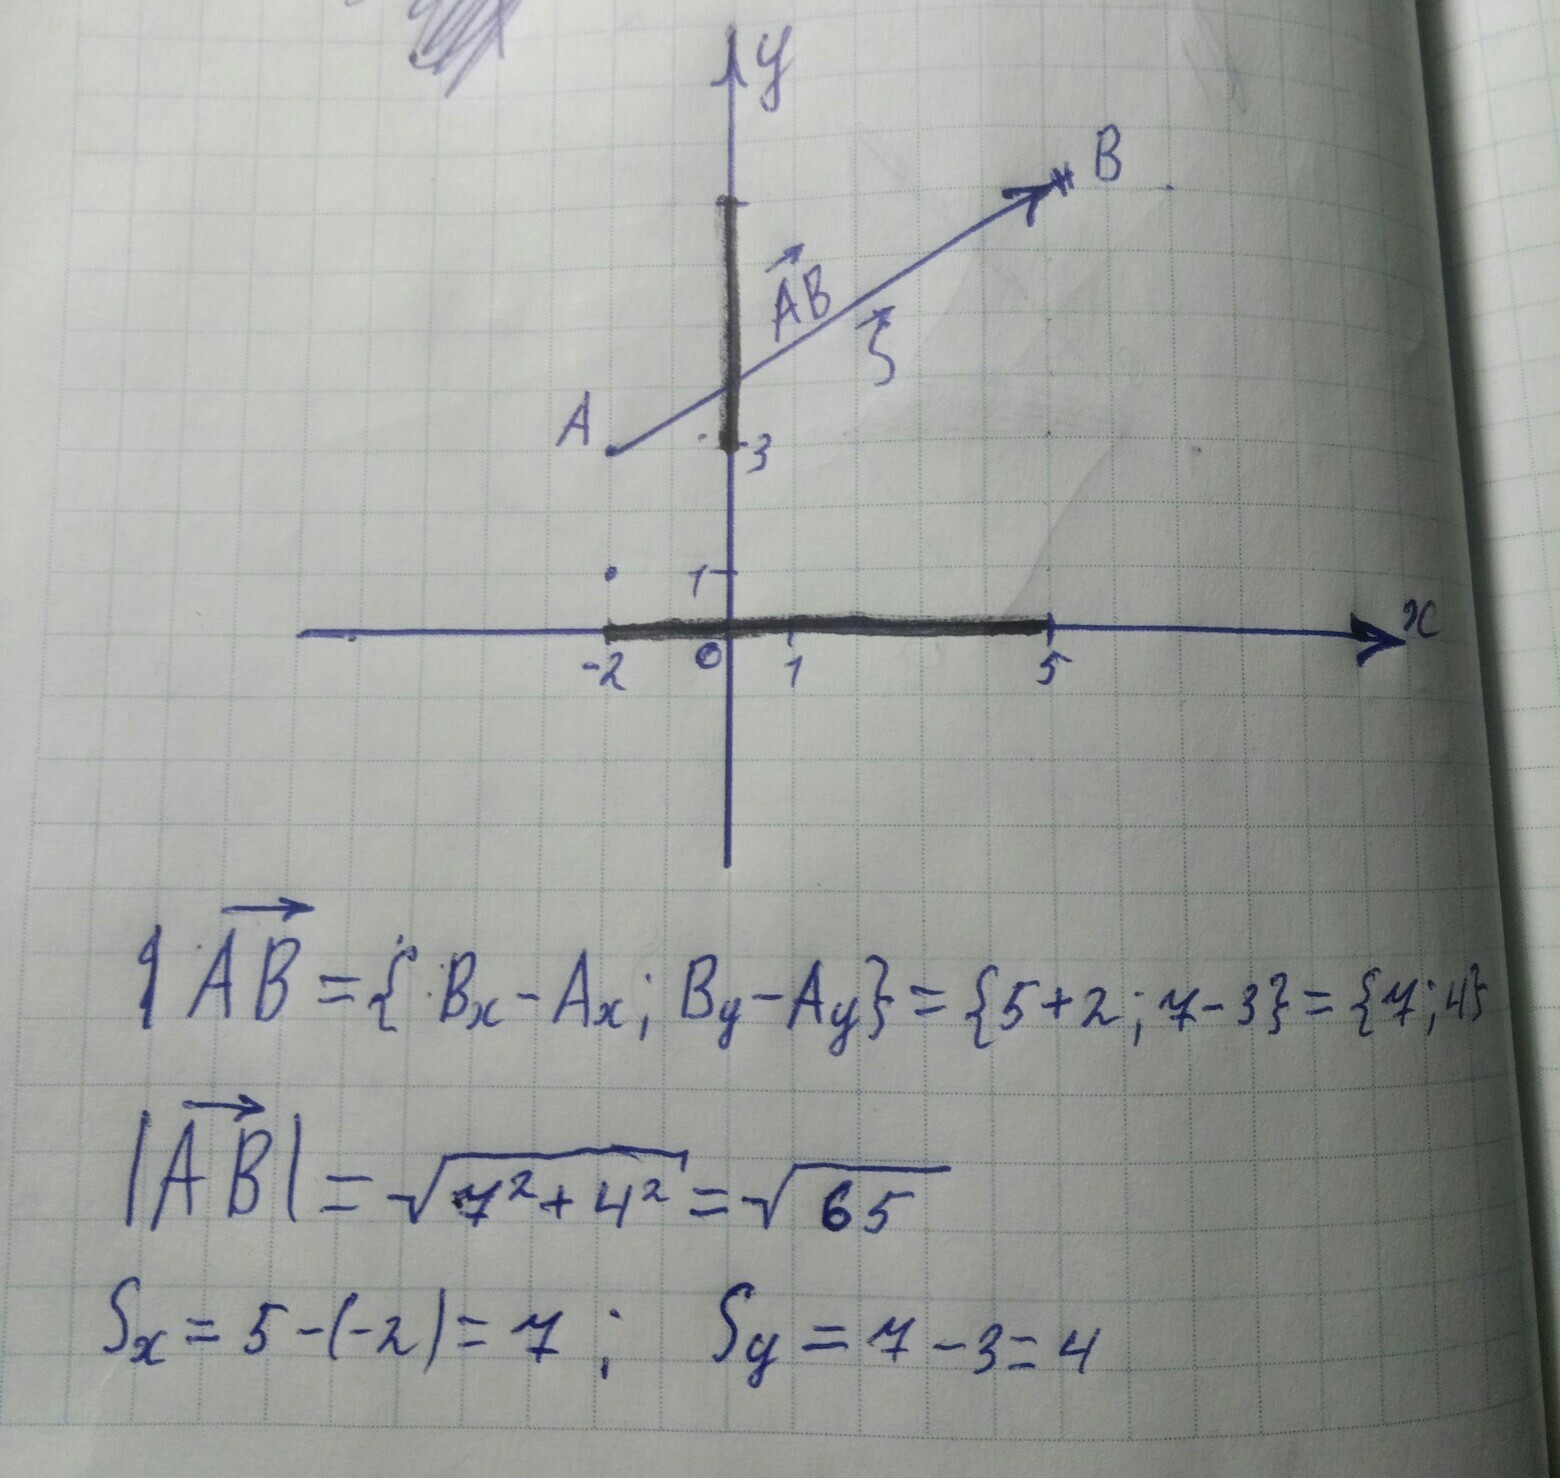 y
B
AB
S
A
3
1
x
-2 0 1 5
AB = { Bx - Ax ; By - Ay } = {5+2 ; 7-3} = {7; 4}
|AB| = √7² + 4² = √65
Sx = 5 - (-2) = 7 ; Sy = 7 - 3 = 4